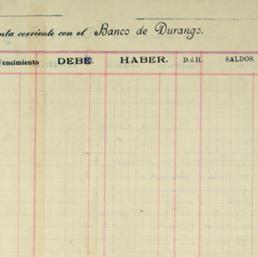 corriente con el Banco de Durango.
Vencimiento DEBE. HABER. D. ó H. SALDOS.